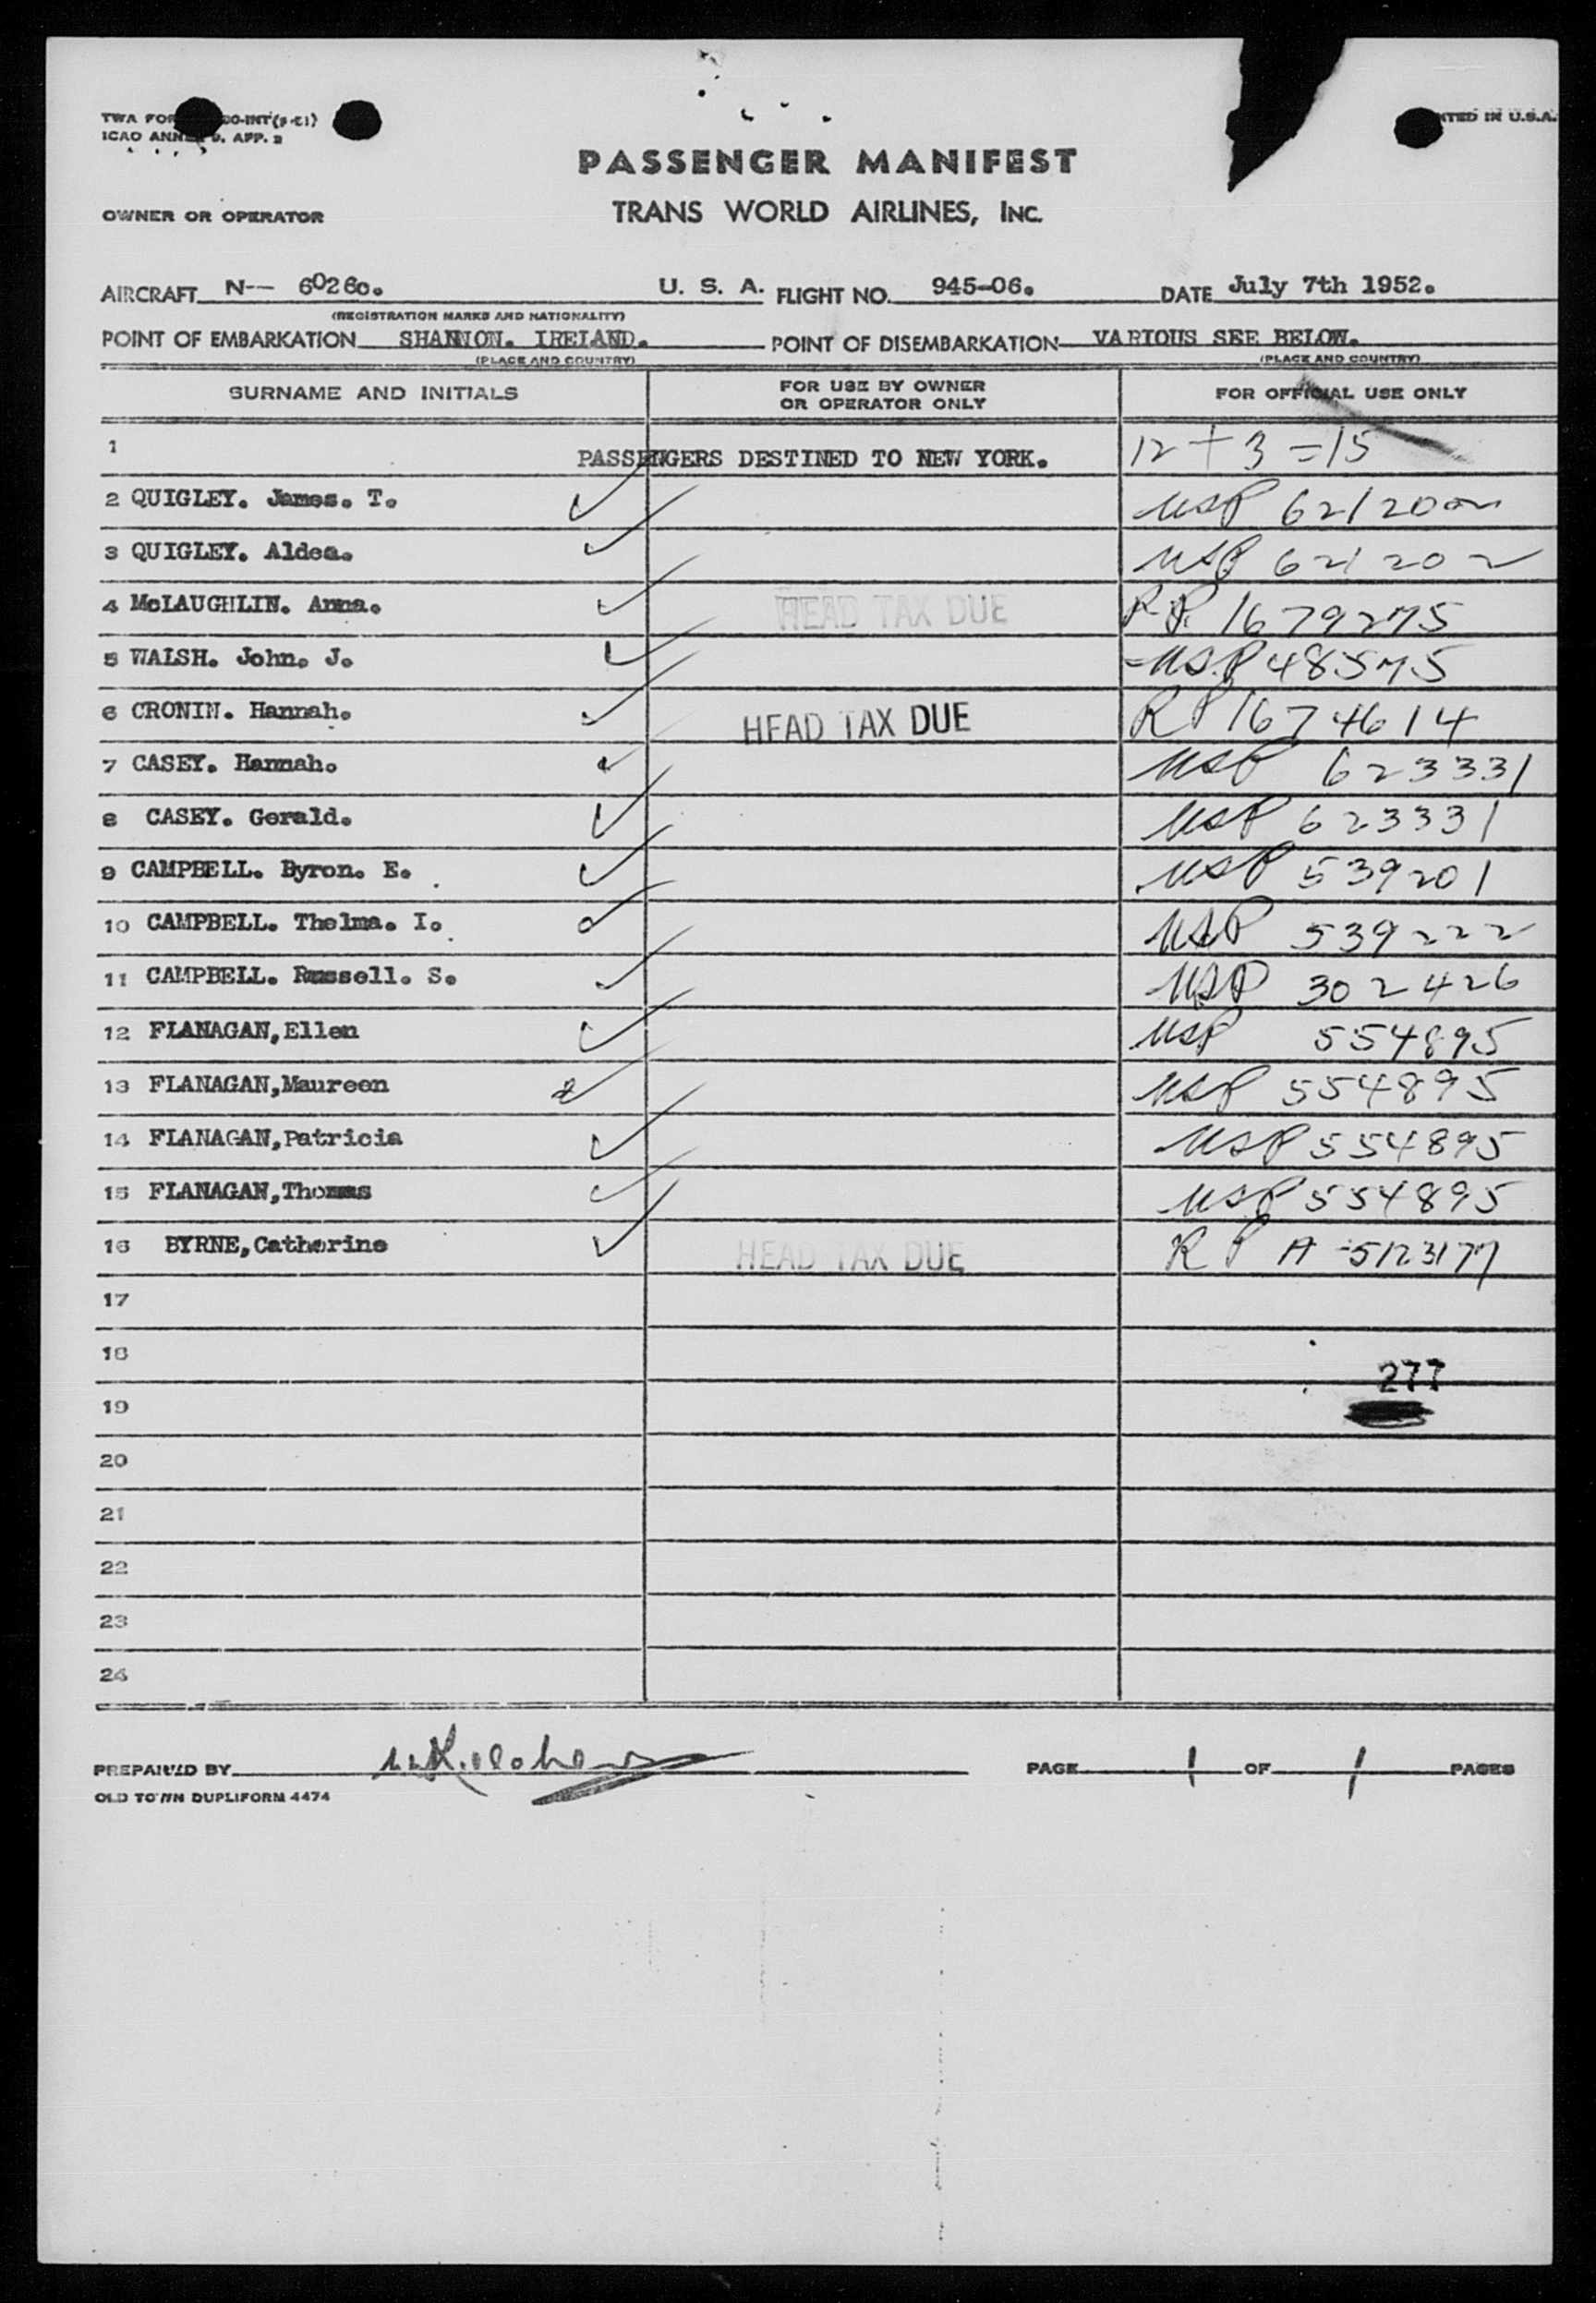 PASSENGER MANIFEST
TRANS WORLD AIRLINES, INC.
OWNER OR OPERATOR
AIRCRAFT N-- 6026c. U. S. A. FLIGHT NO. 945-06. DATE July 7th 1952.
(REGISTRATION MARKS AND NATIONALITY)
POINT OF EMBARKATION SHANNON. IRELAND. POINT OF DISEMBARKATION VARIOUS SEE BELOW.
(PLACE AND COUNTRY) (PLACE AND COUNTRY)
SURNAME AND INITIALS FOR USE BY OWNER OR OPERATOR ONLY FOR OFFICIAL USE ONLY
1 PASSENGERS DESTINED TO NEW YORK. 12 + 3 = 15
2 QUIGLEY. James. T. USP
3 QUIGLEY. Aldea. USP 621202
4 McLAUGHLIN. Anna. HEAD TAX DUE R.P. 1679275
5 WALSH. John. J. USP 48575
6 CRONIN. Hannah. HEAD TAX DUE RP 1674614
7 CASEY. Hannah. USP 623331
8 CASEY. Gerald. USP 623331
9 CAMPBELL. Byron. E. USP 539201
10 CAMPBELL. Thelma. I. USP 539222
11 CAMPBELL. Russell. S. USP 302426
12 FLANAGAN,Ellen USP 554895
13 FLANAGAN,Maureen USP 554895
14 FLANAGAN,Patricia USP 554895
15 FLANAGAN,Thomas USP 554895
16 BYRNE,Catherine HEAD TAX DUE RP A-5123177
17
18
277
19
20
21
22
23
24
PREPARED BY PAGE 1 OF 1 PAGES
OLD TOWN DUPLIFORM 4474